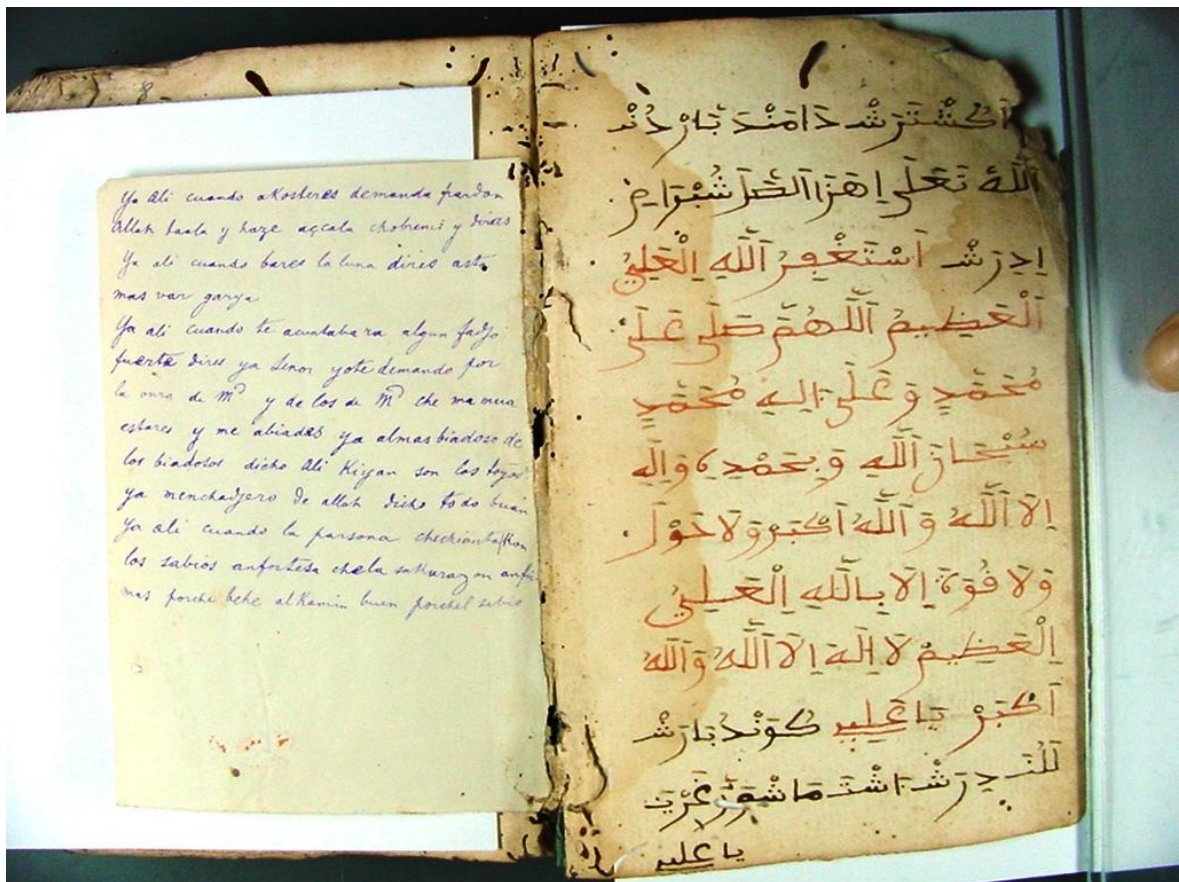 Ya Ali cuando akosteres demanda pardon
Allah taala y haze açcala chobremi y dires
Ya ali cuando bares la luna dires asta
mas var garya
Ya ali cuando te acuntabara algun fadjo
fuerte dires ya Senor yote demando por
la onra de Mᵈ y de los de Mᵈ che ma mua
estares y me abiades ya almas biadoso de
los biadosos dicho Ali Kiyan son los
ya menchadjero de allah dicho todo buan
Ya ali cuando la parsona
los sabios anfortesa chela sukurazon
mas porche bebe alkamin buen porchel sabio
اَكُشْتَرَشْ دَامَنْدَ بَارْدُنْ
اَللَّهْ تَعَلَى اِهَزَا اَلصَّلَ شُبْرَامِ
اِدِرَشْ اَسْتَغْفِرُ اَللَّهِ اِلْعَلِيُ
اَلْعَظِيمُ اَللَّهُمَّ صَلَّى عَلَى
مُحَمَّدٍ وَعَلَى اٰلِهِ مُحَمَّدٍ
سُبْحَانَ اَللَّهِ وَبِحَمْدِهِ وَالَه
اِلَا اَللَّهُ وَاَللَّهُ اَكْبَرْ وَلَا حَوْلَ
وَلَا قُوَةَ اِلَا بِاللَّهِ اِلْعَلِيُ
اِلْعَظِيمْ لَا اِلَهَ اِلَا اَللَّهُ وَاَللَّهُ
اَكْبَرْ يَا عَلِي كُوَنْدُ بَارَشْ
لَلُنَ دِرَشْ اَشْتَ مَاشْ وَرْ غَرْيَ
يا علي